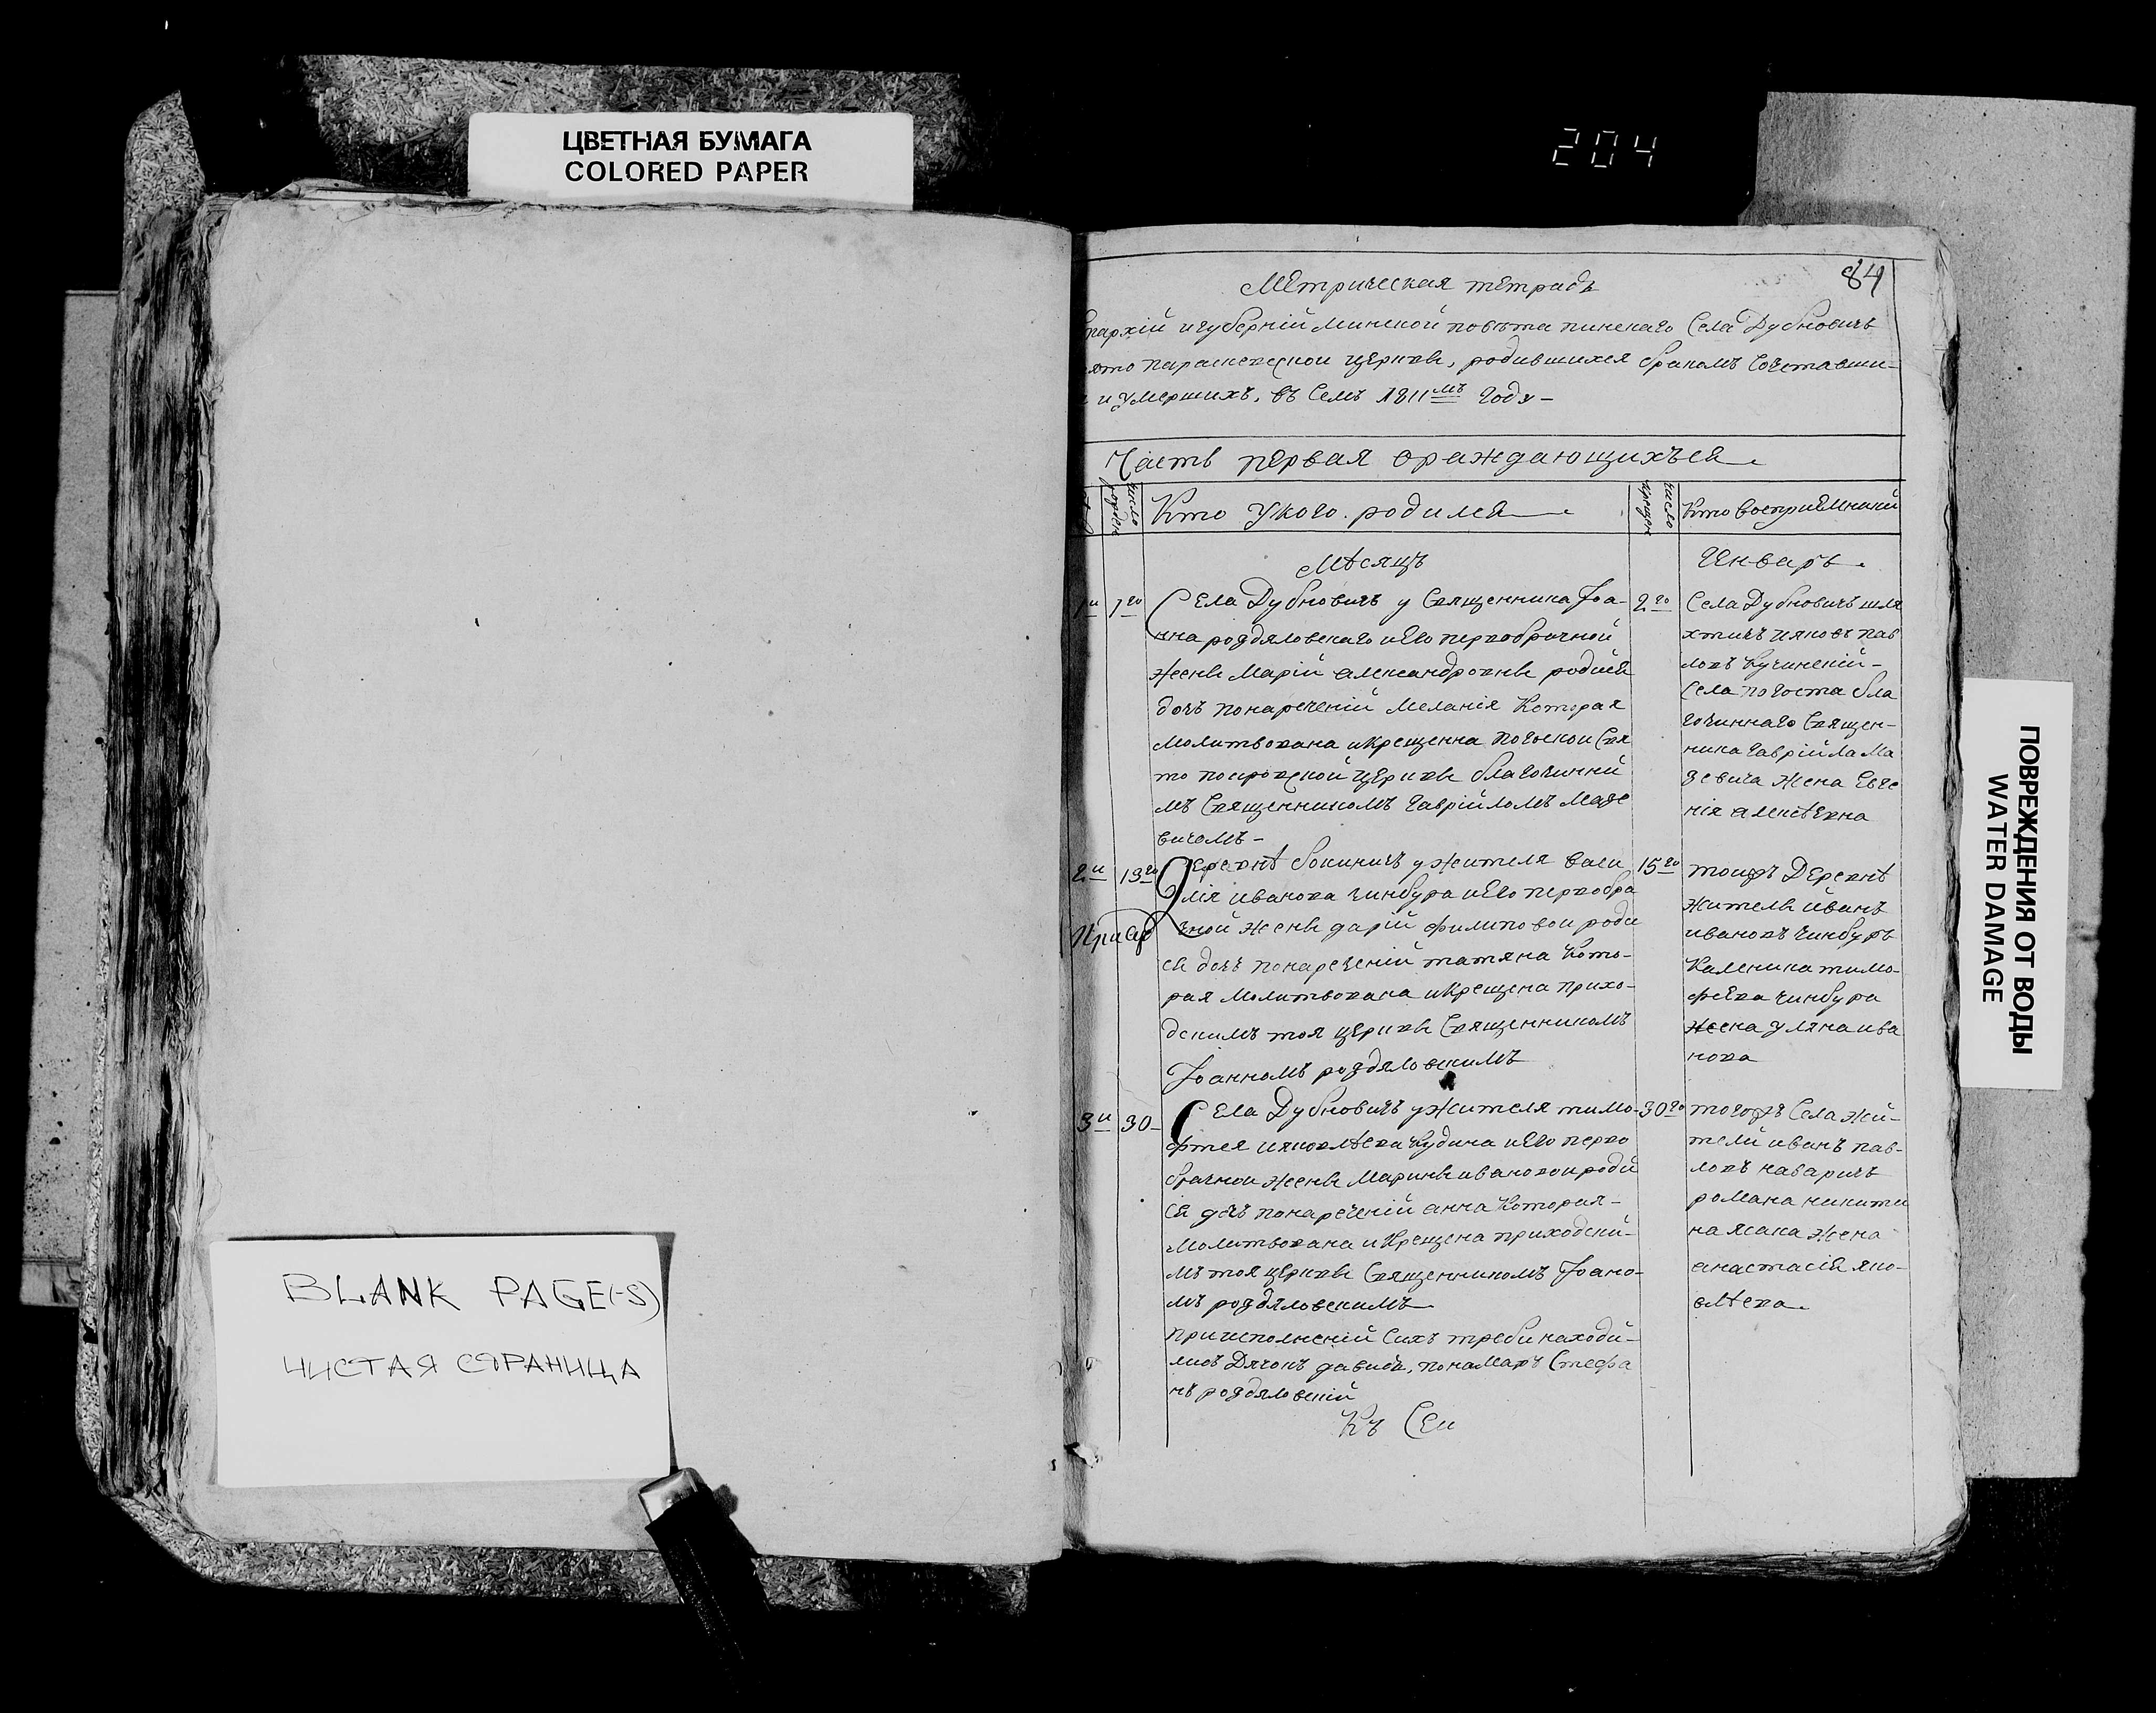 ЦВЕТНАЯ БУМАГА
COLORED PAPER
204
84
Метрическая тетрадь
епархіи и губерніи минской повѣта пинскаго Села Дубновичъ
ято параскевеской церкви, родившихся бракомъ Сочетавши-
и умершихъ, въ Семъ 1811мъ годѣ -
Часть первая ораждающихъся
число рожден
Кто у кого родился
число крещен
Кто восприемники
Мѣсяцъ
Генваръ
1и 1го
Села Дубновичъ у Священника Іоа-
нна роздяловскаго и его первобрачной
жены Маріи александровны родися
дочъ по нареченій меланія которая
молитвована и крещенна погоской Свя
то покровской церкви благочинни
мъ Священникомъ гавріиломъ Мазе
вичомъ -
2го
Села Дубновичъ шля
хтичъ ияковъ пав
ловъ кучинскій -
Села погоста бла
гочиннаго Священ-
ника гавріила Ма
зевича жена Евге
нія алексѣевна
2и 13го
Деревнѣ бокиничъ у жителя васи
лія иванова чинбура и его первобра
чной жены дарій филиповой роди
ся дочъ по нареченій татяна кото-
рая молитвована и крещена прихо-
дскимъ тоя церкви Священникомъ
Іоанномъ роздяловскимъ
15го
тоижъ Деревнѣ
житель иванъ
ивановъ чинбуръ
каленика тимо-
феева чинбура
жена уляна ива
нова
3и 30-
Села Дубновичъ у жителя тимо-
фтея ияковлѣва кудина и его перво
брачной жены Марины ивановой роди
ся дочъ по нареченій анна которая -
молитвована и крещена приходски-
мъ тоя церкви Священникомъ Іоано-
мъ роздяловскимъ
при исполненій Сихъ требъ находи-
лись Дячокъ давидъ, понамаръ Стефа
нъ роздяловскій
30го
тогожъ Села жи-
тели иванъ пав-
ловъ наваричъ
романа никити
на ясака жена
анастасія яко-
влѣва
Къ Сей
BLANK PAGE(-S)
ЧИСТАЯ СТРАНИЦА
ПОВРЕЖДЕНИЯ ОТ ВОДЫ
WATER DAMAGE